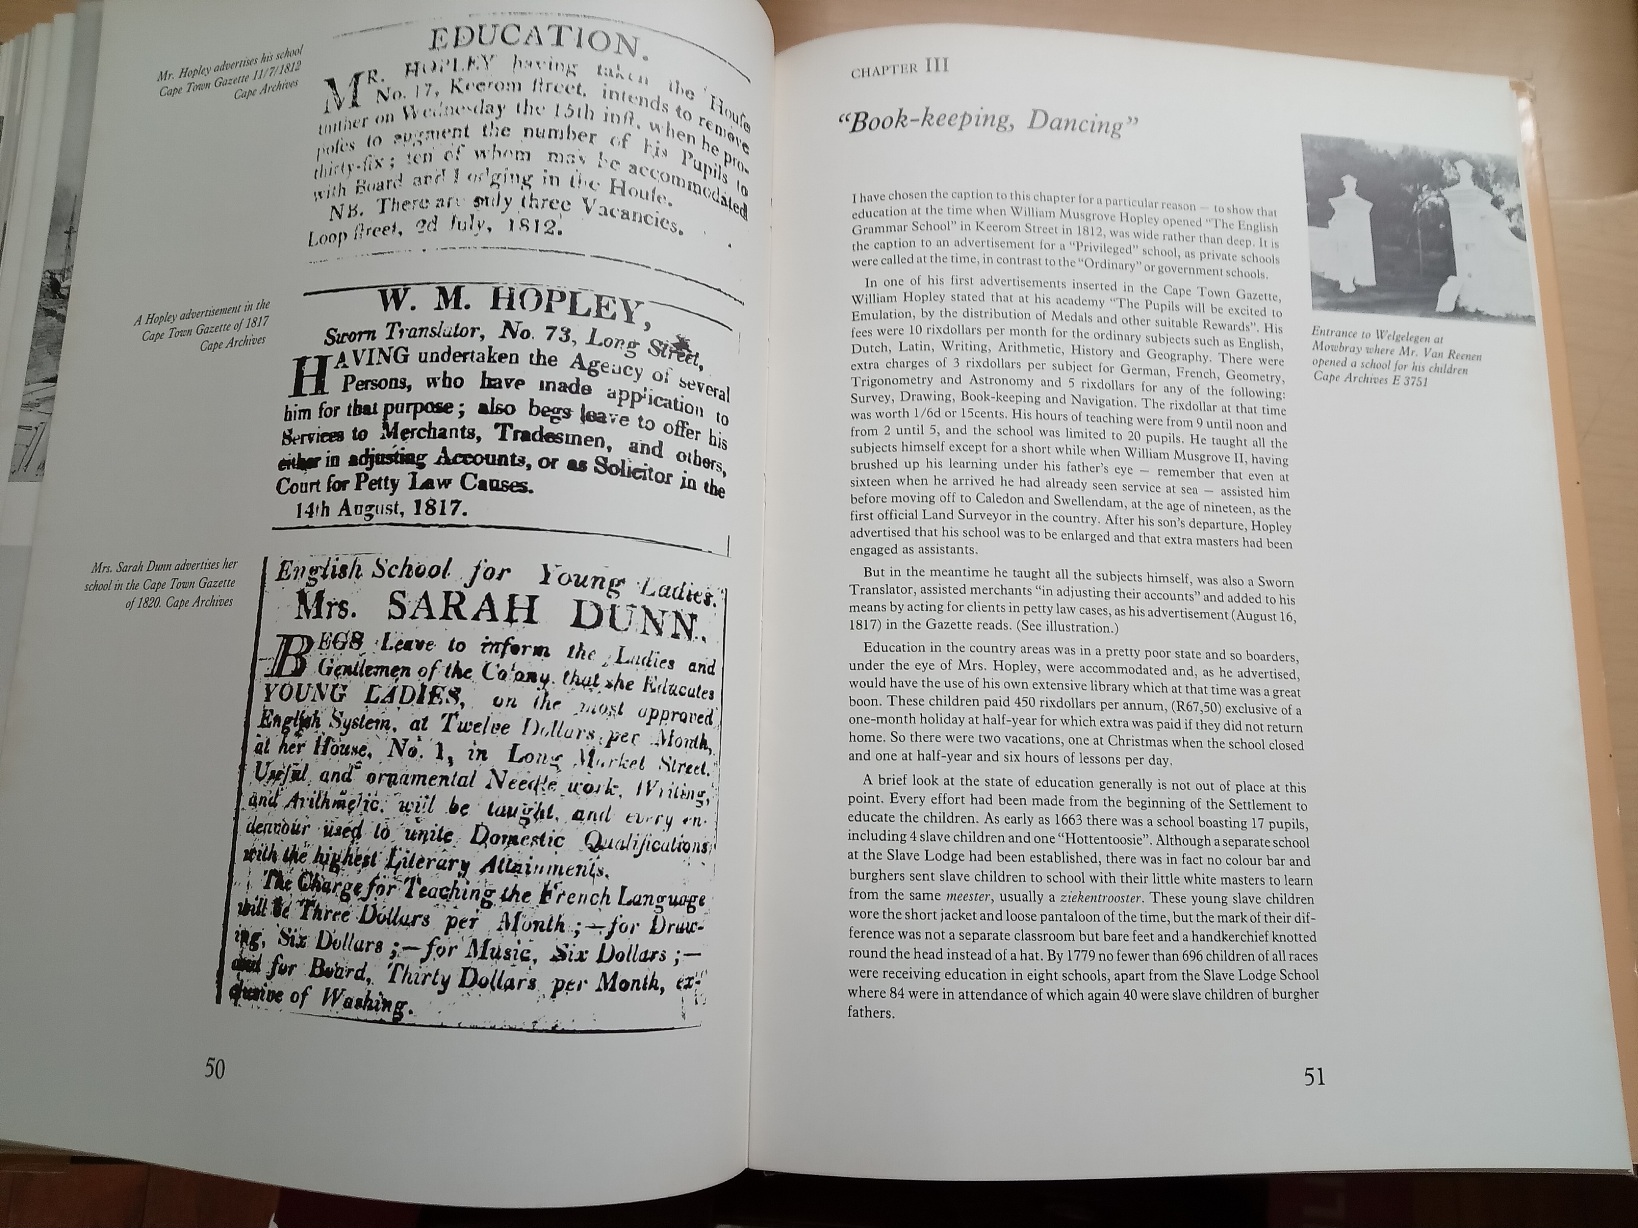 Mr. Hopley advertises his school
Cape Town Gazette 11/7/1812
Cape Archives
EDUCATION.
MR. HOPLEY having taken the House
No. 17, Keerom ſtreet, intends to remove
thither on Wednesday the 15th inſt. when he pro-
poſes to augment the number of his Pupils to
thirty-ſix; ten of whom may be accommodated
with Board and Lodging in the Houſe.
NB. There are only three Vacancies.
Loop ſtreet, 2d July, 1812.
A Hopley advertisement in the
Cape Town Gazette of 1817
Cape Archives
W. M. HOPLEY,
Sworn Translator, No. 73, Long Street,
HAVING undertaken the Agency of several
Persons, who have made application to
him for that purpose; also begs leave to offer his
Services to Merchants, Tradesmen, and others,
either in adjusting Accounts, or as Solicitor in the
Court for Petty Law Causes.
14th August, 1817.
Mrs. Sarah Dunn advertises her
school in the Cape Town Gazette
of 1820. Cape Archives
English School for Young Ladies.
Mrs. SARAH DUNN.
BEGS Leave to inform the Ladies and
Gentlemen of the Colony, that she Educates
YOUNG LADIES, on the most approved
English System, at Twelve Dollars per Month,
at her House, No. 1, in Long Market Street.
Useful and ornamental Needle work, Writing,
and Arithmetic, will be taught, and every en-
deavour used to unite Domestic Qualifications
with the highest Literary Attainments.
The Charge for Teaching the French Language
will be Three Dollars per Month;—for Draw-
ing, Six Dollars;—for Music, Six Dollars;—
and for Board, Thirty Dollars per Month, ex-
clusive of Washing.
50
CHAPTER III
“Book-keeping, Dancing”
I have chosen the caption to this chapter for a particular reason — to show that
education at the time when William Musgrove Hopley opened “The English
Grammar School” in Keerom Street in 1812, was wide rather than deep. It is
the caption to an advertisement for a “Privileged” school, as private schools
were called at the time, in contrast to the “Ordinary” or government schools.
In one of his first advertisements inserted in the Cape Town Gazette,
William Hopley stated that at his academy “The Pupils will be excited to
Emulation, by the distribution of Medals and other suitable Rewards”. His
fees were 10 rixdollars per month for the ordinary subjects such as English,
Dutch, Latin, Writing, Arithmetic, History and Geography. There were
extra charges of 3 rixdollars per subject for German, French, Geometry,
Trigonometry and Astronomy and 5 rixdollars for any of the following:
Survey, Drawing, Book-keeping and Navigation. The rixdollar at that time
was worth 1/6d or 15cents. His hours of teaching were from 9 until noon and
from 2 until 5, and the school was limited to 20 pupils. He taught all the
subjects himself except for a short while when William Musgrove II, having
brushed up his learning under his father’s eye — remember that even at
sixteen when he arrived he had already seen service at sea — assisted him
before moving off to Caledon and Swellendam, at the age of nineteen, as the
first official Land Surveyor in the country. After his son’s departure, Hopley
advertised that his school was to be enlarged and that extra masters had been
engaged as assistants.
But in the meantime he taught all the subjects himself, was also a Sworn
Translator, assisted merchants “in adjusting their accounts” and added to his
means by acting for clients in petty law cases, as his advertisement (August 16,
1817) in the Gazette reads. (See illustration.)
Education in the country areas was in a pretty poor state and so boarders,
under the eye of Mrs. Hopley, were accommodated and, as he advertised,
would have the use of his own extensive library which at that time was a great
boon. These children paid 450 rixdollars per annum, (R67,50) exclusive of a
one-month holiday at half-year for which extra was paid if they did not return
home. So there were two vacations, one at Christmas when the school closed
and one at half-year and six hours of lessons per day.
A brief look at the state of education generally is not out of place at this
point. Every effort had been made from the beginning of the Settlement to
educate the children. As early as 1663 there was a school boasting 17 pupils,
including 4 slave children and one “Hottentoosie”. Although a separate school
at the Slave Lodge had been established, there was in fact no colour bar and
burghers sent slave children to school with their little white masters to learn
from the same meester, usually a ziekentrooster. These young slave children
wore the short jacket and loose pantaloon of the time, but the mark of their dif-
ference was not a separate classroom but bare feet and a handkerchief knotted
round the head instead of a hat. By 1779 no fewer than 696 children of all races
were receiving education in eight schools, apart from the Slave Lodge School
where 84 were in attendance of which again 40 were slave children of burgher
fathers.
Entrance to Welgelegen at
Mowbray where Mr. Van Reenen
opened a school for his children
Cape Archives E 3751
51